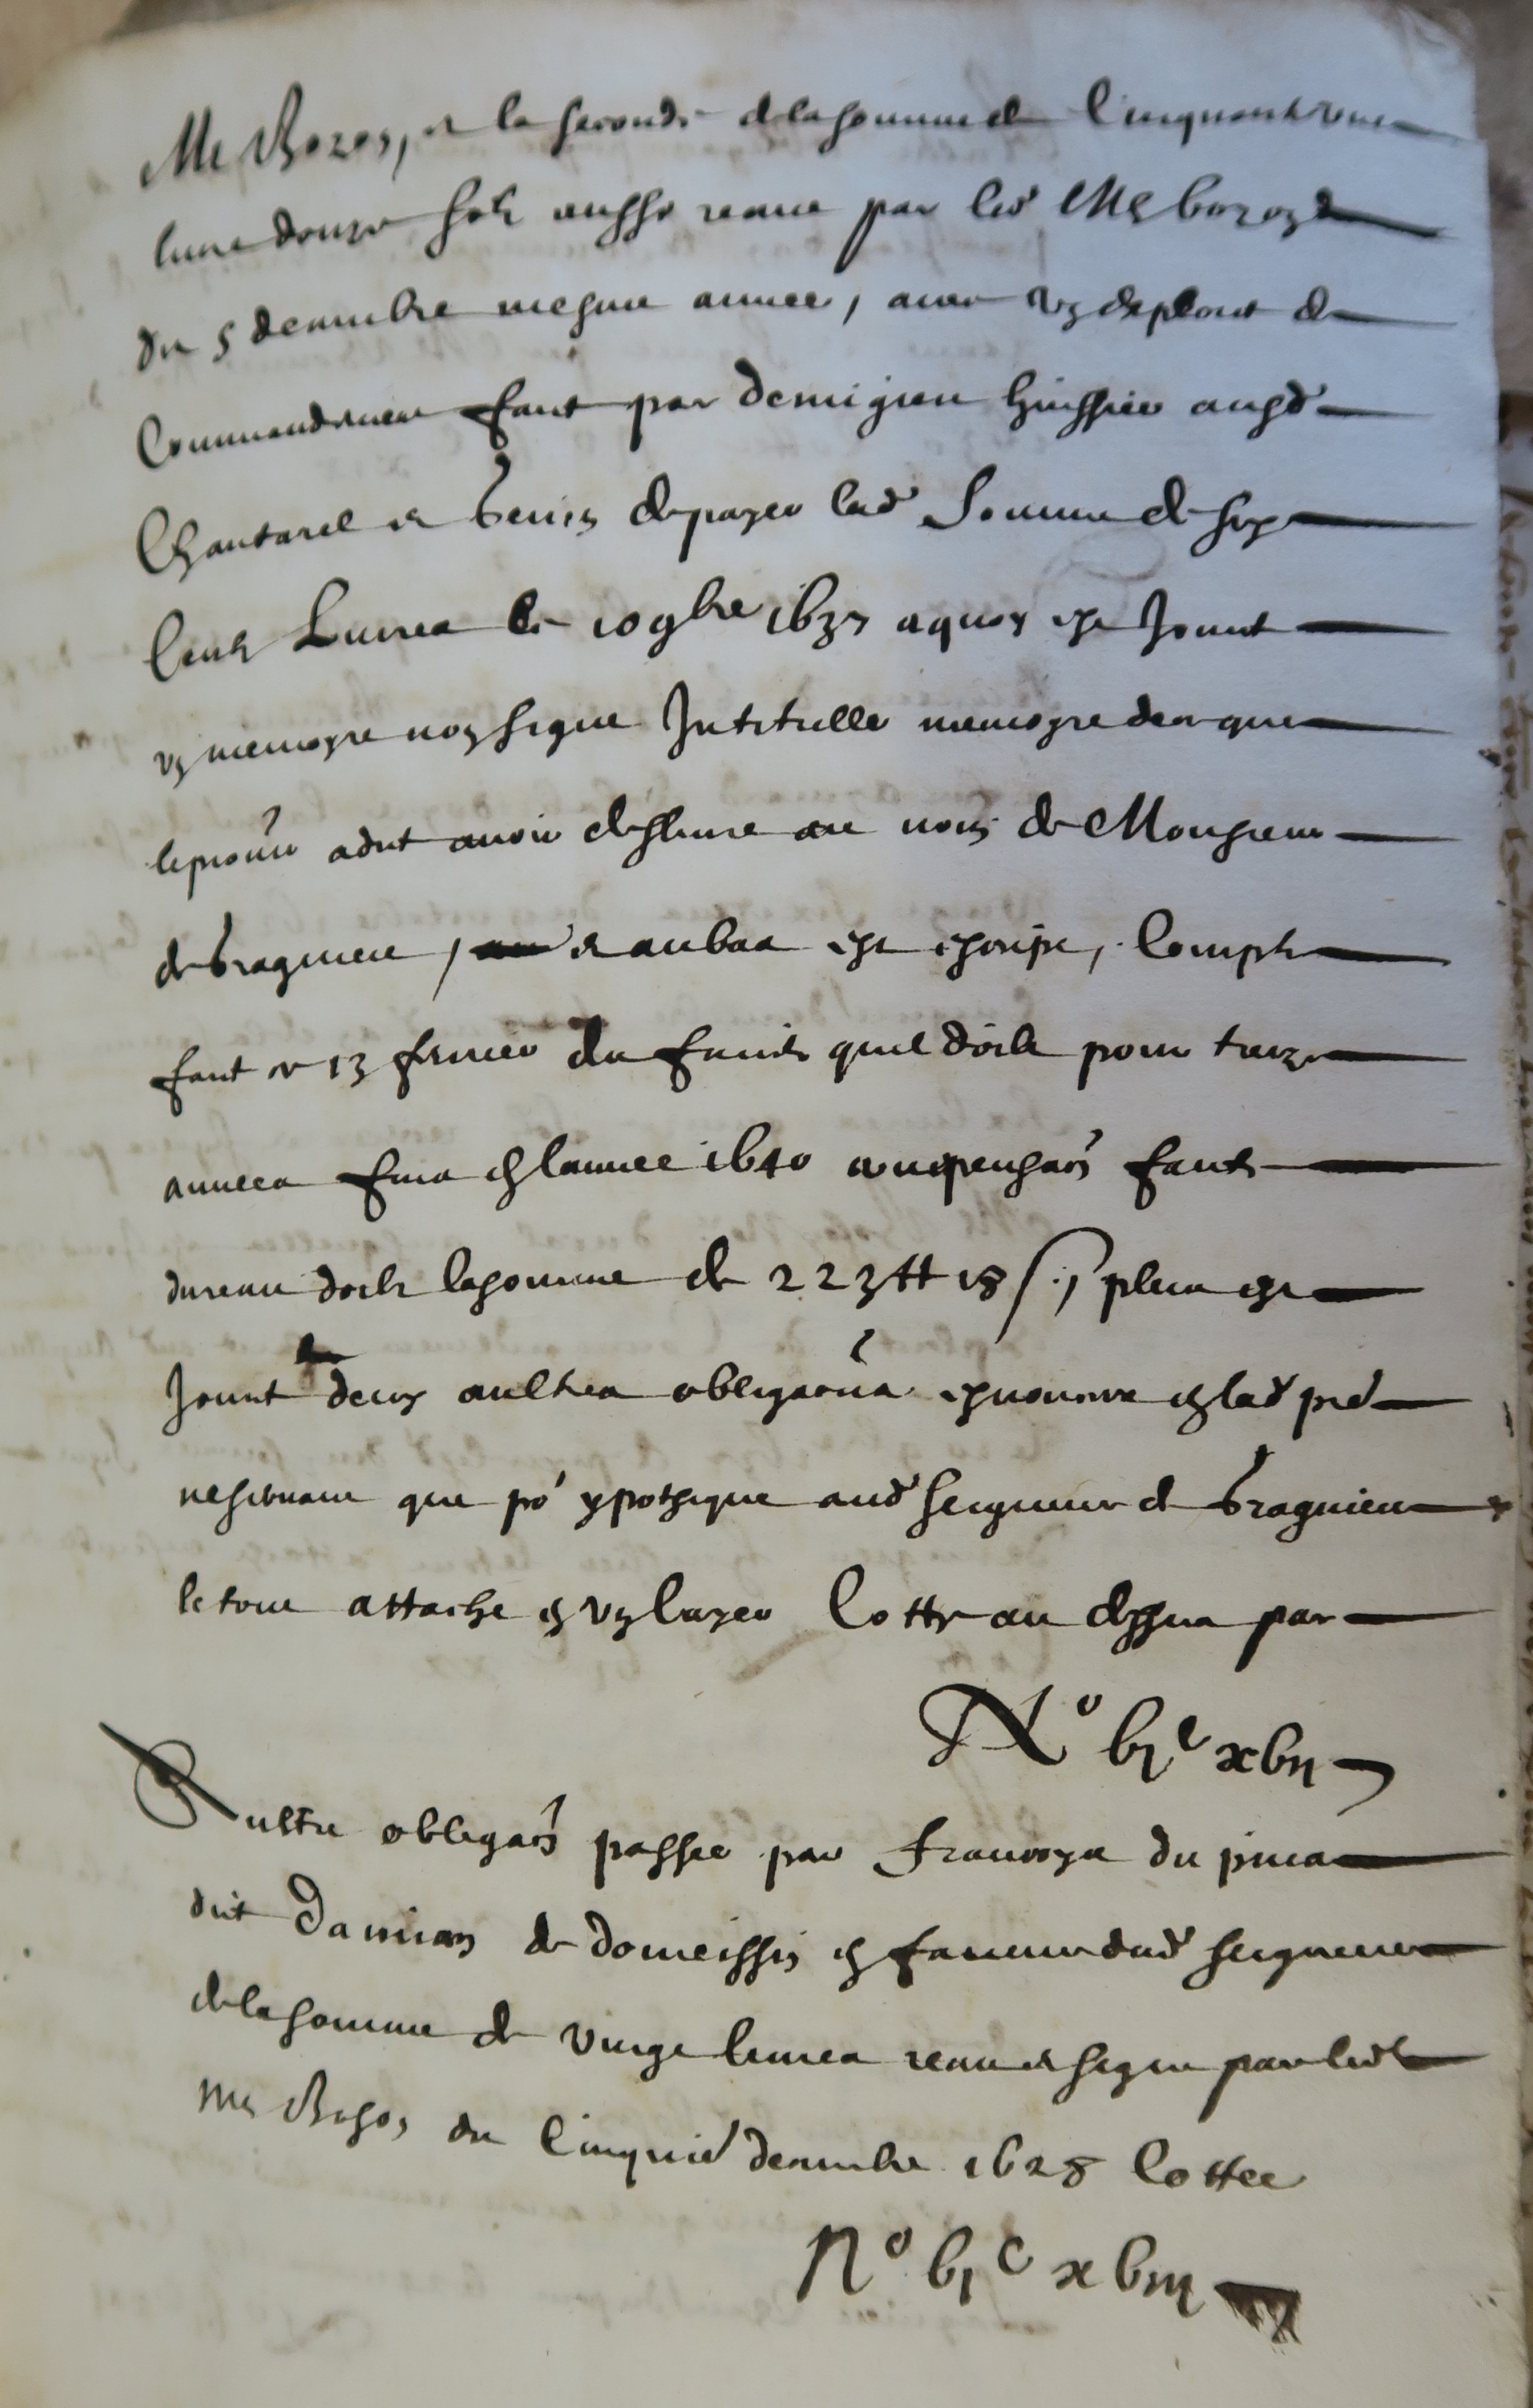 Me Bozon, et la seconde de la somme de Cinquante une
livre douze solz aussy receue par led Me bozon
du 5 decembre mesme annee, avec un exploict de
Commandement faict par demigieu huissier ausd
Chantarel et benin de payer lad somme de six
Centz Livres le 10 9bre 1637 a quoy est Joinct
un memoyre non signe Intitulle memoyre de ce que
avoir au nom de Monsieur
de bragnieu, et au bas est escript, Compte
faict ce 13 febvrier du que doibt pour treize
annees fines en lannee 1640 compensaon faicte
doibt la somme de 223 tt 18 s., plus est
Joinct deux aultres obligaons en lad
que po ypotheque aud seigneur de bragnieu
le tout attache en un Cayer Cotte au dessus par
No vjc xvij
Aultre obligaon passee par Francoys du pin
dict Damian de Domeissin en faveur dud seigneur
de la somme de vingt livres receue et signe par led
Me Bozon du Cinquie decembre 1628 Cottee
No vjc xviij